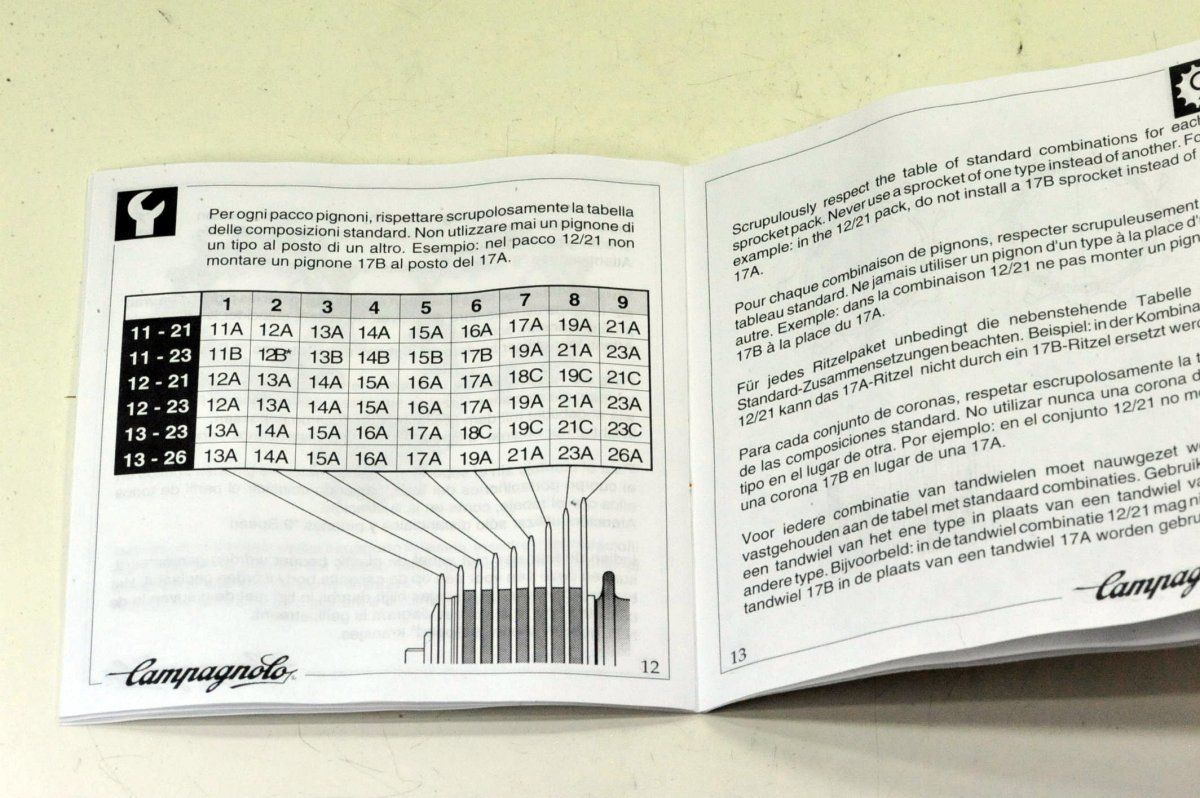 Per ogni pacco pignoni, rispettare scrupolosamente la tabella
delle composizioni standard. Non utilizzare mai un pignone di
un tipo al posto di un altro. Esempio: nel pacco 12/21 non
montare un pignone 17B al posto del 17A.
1 2 3 4 5 6 7 8 9
11 - 21 11A 12A 13A 14A 15A 16A 17A 19A 21A
11 - 23 11B 12B* 13B 14B 15B 17B 19A 21A 23A
12 - 21 12A 13A 14A 15A 16A 17A 18C 19C 21C
12 - 23 12A 13A 14A 15A 16A 17A 19A 21A 23A
13 - 23 13A 14A 15A 16A 17A 18C 19C 21C 23C
13 - 26 13A 14A 15A 16A 17A 19A 21A 23A 26A
Campagnolo
12
Scrupulously respect the table of standard combinations for each
sprocket pack. Never use a sprocket of one type instead of another.
example: in the 12/21 pack, do not install a 17B sprocket instead of
17A.
Pour chaque combinaison de pignons, respecter scrupuleusement
tableau standard. Ne jamais utiliser un pignon d'un type à la place d'
autre. Exemple: dans la combinaison 12/21 ne pas monter un
17B à la place du 17A.
Für jedes Ritzelpaket unbedingt die nebenstehende Tabelle
Standard-Zusammensetzungen beachten. Beispiel: in der
12/21 kann das 17A-Ritzel nicht durch ein 17B-Ritzel ersetzt
Para cada conjunto de coronas, respetar escrupulosamente la
de las composiciones standard. No utilizar nunca una corona
tipo en el lugar de otra. Por ejemplo: en el conjunto 12/21 no
una corona 17B en lugar de una 17A.
Voor iedere combinatie van tandwielen moet nauwgezet
vastgehouden aan de tabel met standaard combinaties.
een tandwiel van het ene type in plaats van een tandwiel
andere type. Bijvoorbeeld: in de tandwiel combinatie 12/21 mag
tandwiel 17B in de plaats van een tandwiel 17A worden
13